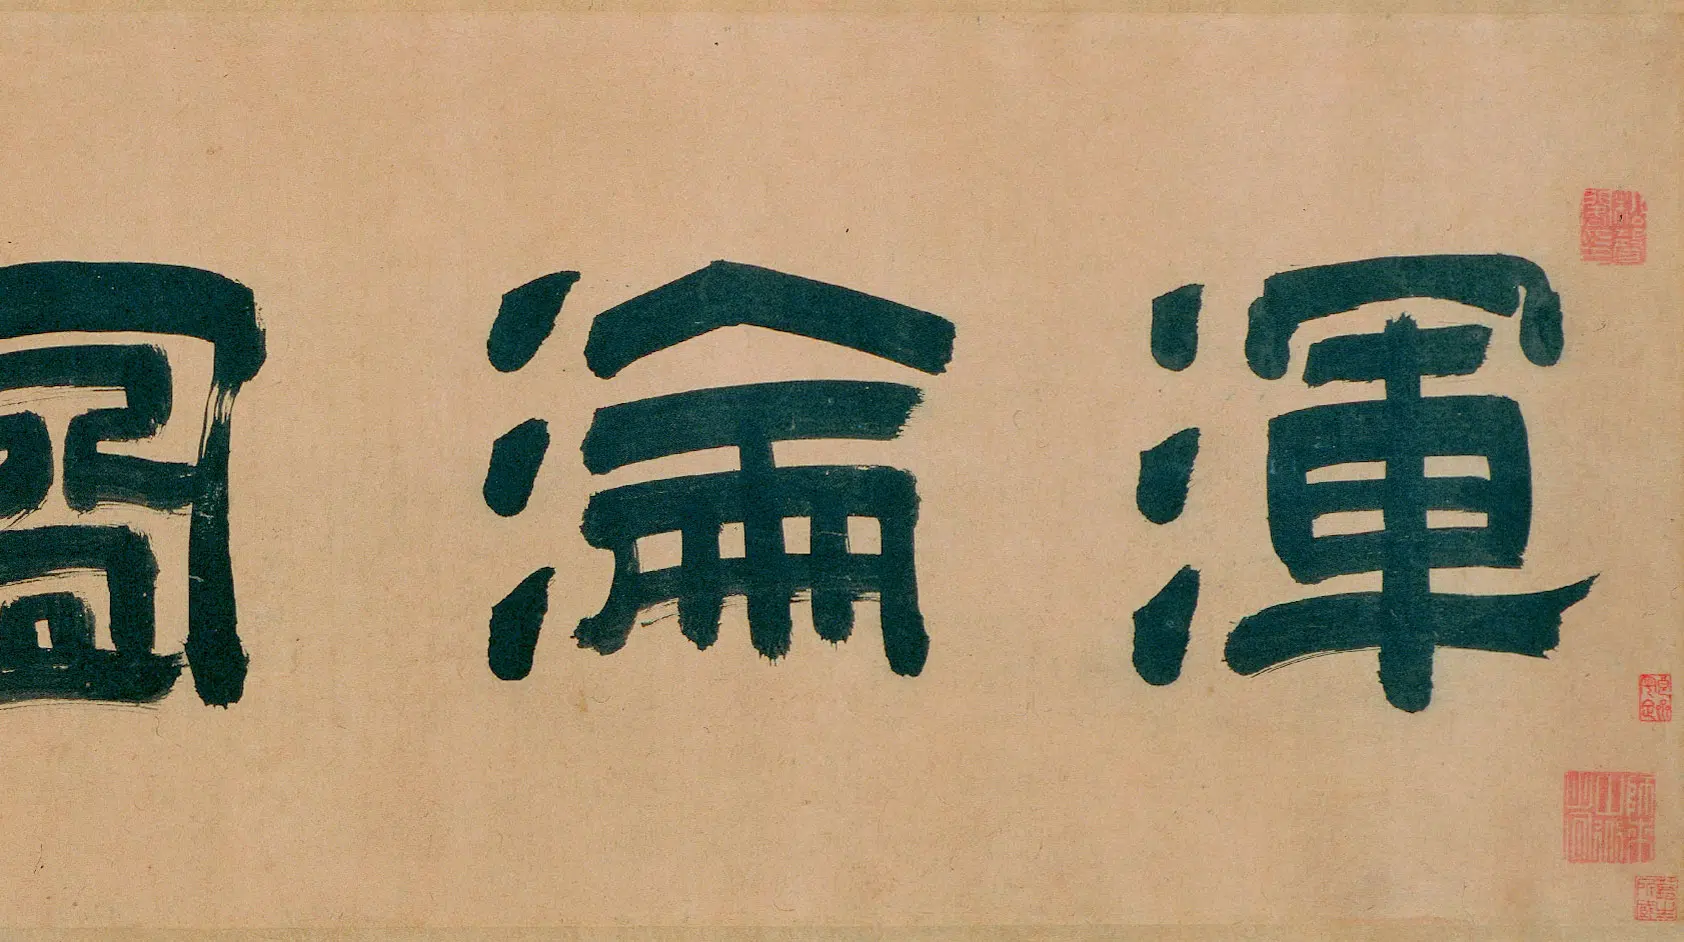 渾淪圖